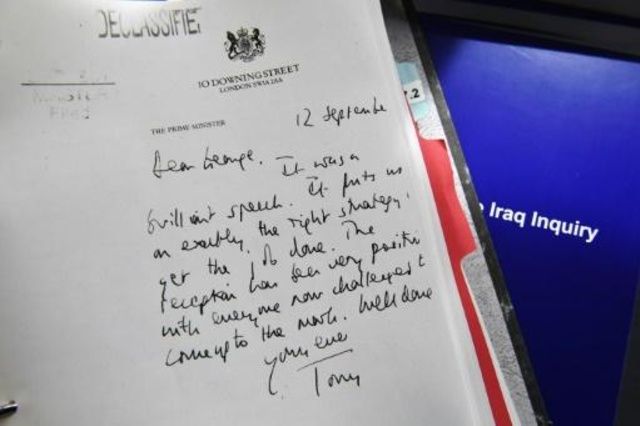 DECLASSIFIED
10 DOWNING STREET
LONDON SW1A 2AA
THE PRIME MINISTER
12 September
Dear George.
It was a
brilliant speech. It puts us
on exactly the right strategy to
get the job done. The
reception has been very positive
with everyone now challenged to
come up to the mark. Well done
Yours ever
Tony
7.2
Iraq Inquiry